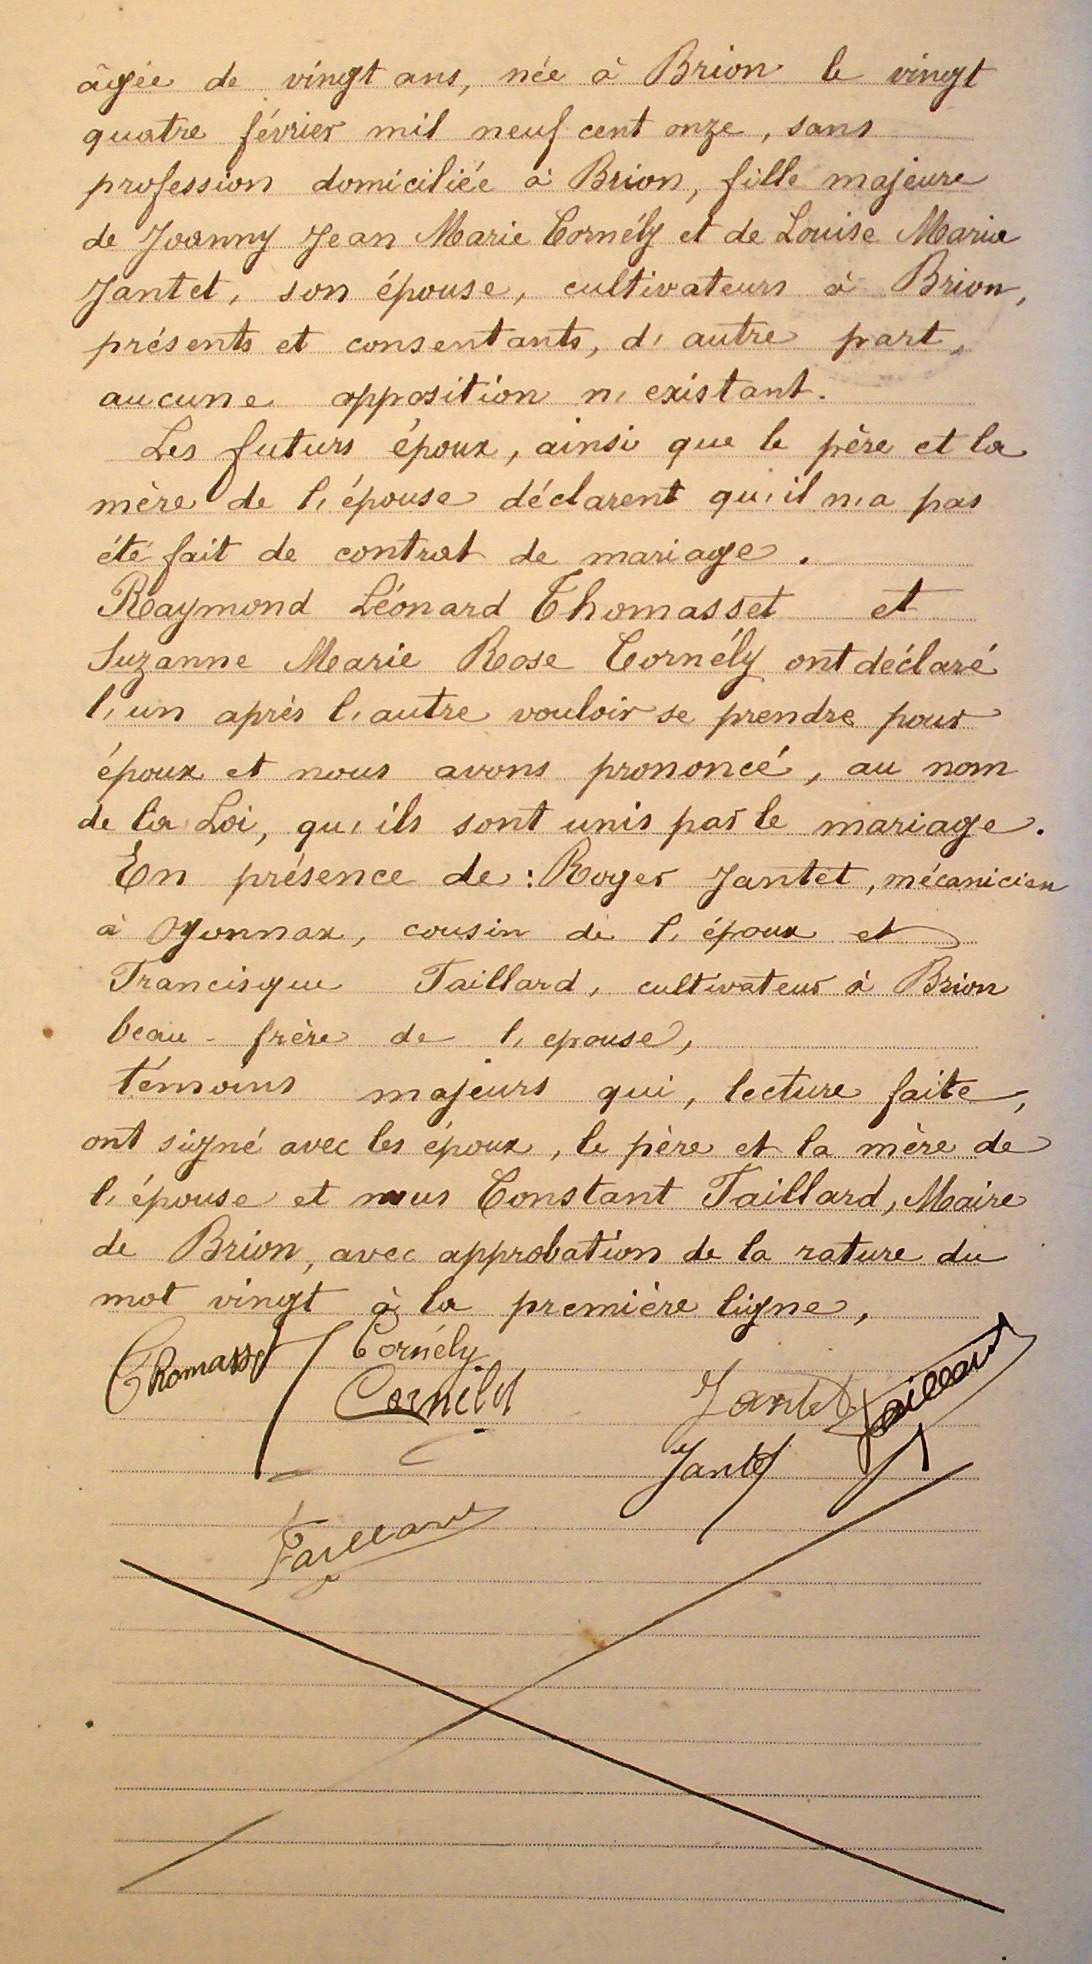 âgée de vingt ans, née à Brion le vingt
quatre février mil neuf cent onze, sans
profession domiciliée à Brion, fille majeure
de Joanny Jean Marie Cornély et de Louise Marie
Jantet, son épouse, cultivateurs à Brion,
présents et consentants, d'autre part,
aucune opposition n'existant.
Les futurs époux, ainsi que le père et la
mère de l'épouse déclarent qu'il n'a pas
été fait de contrat de mariage.
Raymond Léonard Thomasset et
Suzanne Marie Rose Cornély ont déclaré
l'un après l'autre vouloir se prendre pour
époux et nous avons prononcé, au nom
de la Loi, qu'ils sont unis par le mariage.
En présence de : Roger Jantet, mécanicien
à Oyonnax, cousin de l'époux et
Francisque Taillard, cultivateur à Brion
beau-frère de l'epouse,
témoins majeurs qui, lecture faite,
ont signé avec les époux, le père et la mère de
l'épouse et nous Constant Taillard, Maire
de Brion, avec approbation de la rature du
mot vingt à la première ligne,
Thomasset Cornély
Cornély Jantet Taillard
Jantet
Taillard